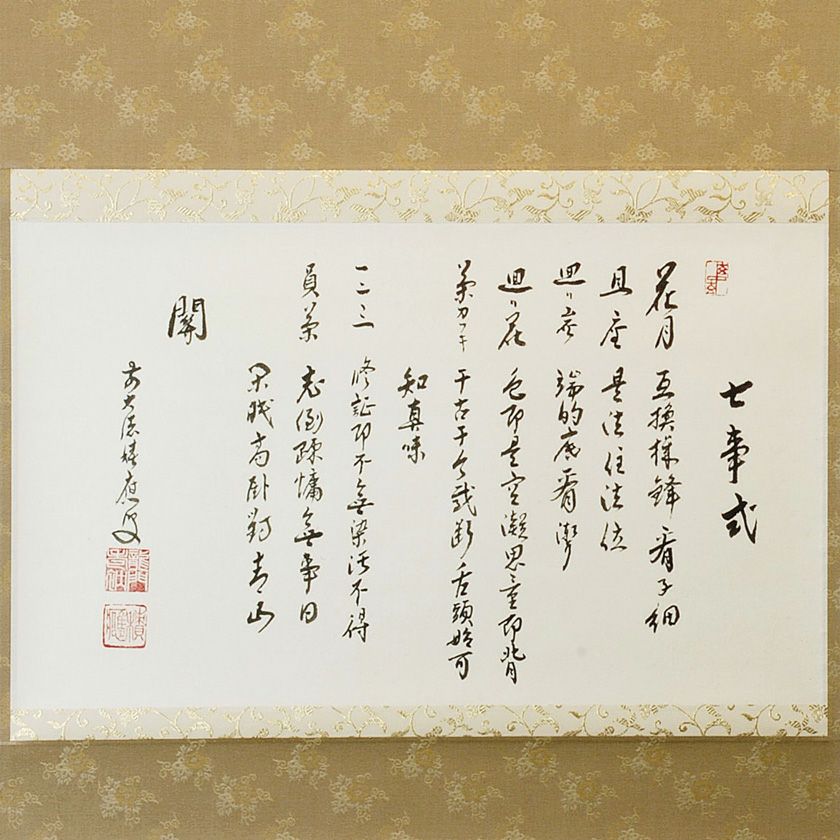 七事式
花月 互換機鋒看子細
且座 是法住法位
廻リ炭 端的底看聻
廻リ花 色即是空凝思量即背
茶カフキ 千古千今截断舌頭始可
知真味
一二三 修証即不無染汚不得
員茶 老倒疎慵無事日
閑眠高臥対青山
關